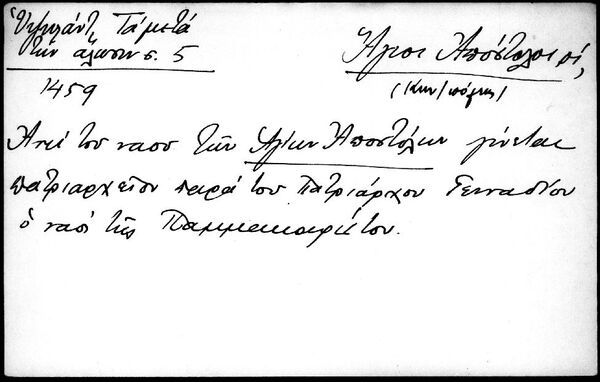 Ὑψηλάντ, Τὰ μετὰ
τὴν ἅλωσιν σ. 5
Ἅγιοι Ἀπόστολοι οἱ,
1459
(Κων/πόλεως)
Ἀντὶ τοῦ ναοῦ τῶν Ἁγίων Ἀποστόλων γίνεται
πατριαρχεῖον παρὰ τοῦ Πατριάρχου Γενναδίου
ὁ ναὸς τῆς Παμμακαρίστου.